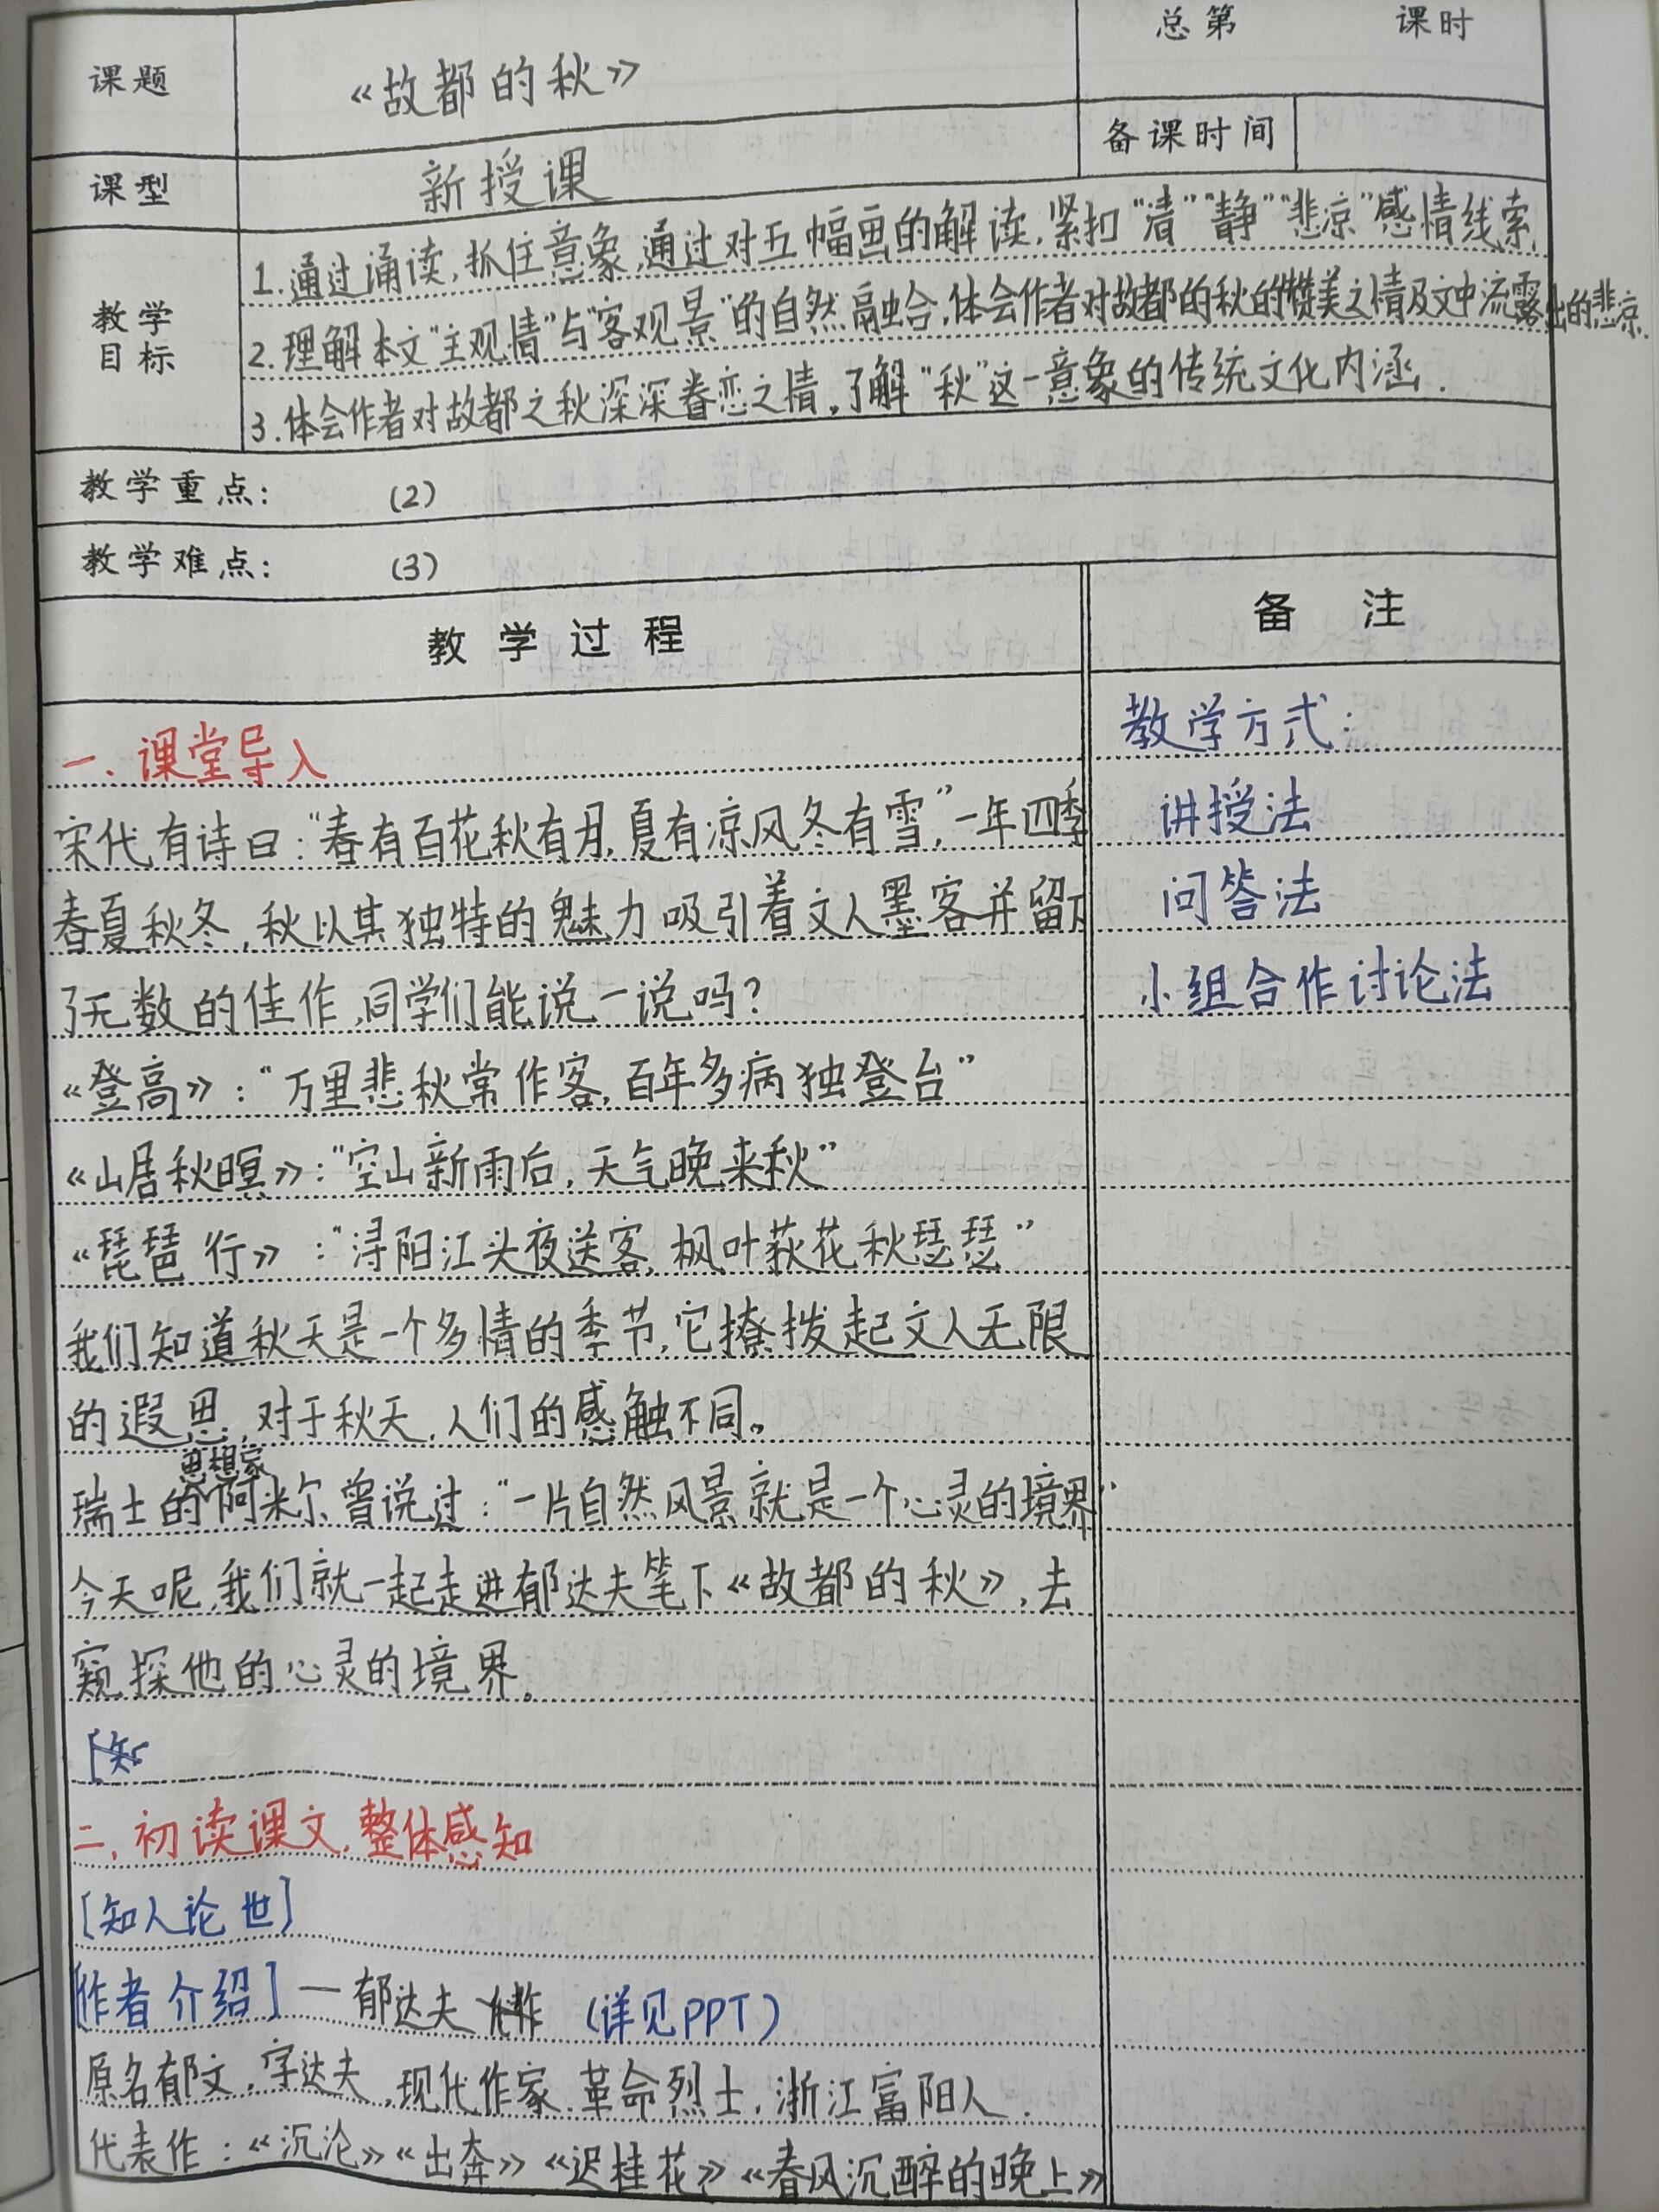 课题
《故都的秋》
总第 课时
备课时间
课型
新授课
教学目标
1.通过诵读,抓住意象,通过对五幅画的解读,紧扣“清”“静”“悲凉”感情线索,
2.理解本文“主观情”与“客观景”的自然融合,体会作者对故都的秋的赞美之情及文中流露出的悲凉.
3.体会作者对故都之秋深深眷恋之情,了解“秋”这一意象的传统文化内涵.
教学重点: (2)
教学难点: (3)
教学过程
备注
一、课堂导入
宋代有诗曰:“春有百花秋有月,夏有凉风冬有雪,”一年四季
春夏秋冬,秋以其独特的魅力吸引着文人墨客并留下
了无数的佳作,同学们能说一说吗?
《登高》:“万里悲秋常作客,百年多病独登台”
《山居秋暝》:“空山新雨后,天气晚来秋”
《琵琶行》:“浔阳江头夜送客,枫叶荻花秋瑟瑟”
我们知道秋天是一个多情的季节,它撩拨起文人无限
的遐思,对于秋天,人们的感触不同。
思想家
瑞士的阿米尔曾说过:“一片自然风景就是一个心灵的境界”
今天呢,我们就一起走进郁达夫笔下《故都的秋》,去
窥探他的心灵的境界。
[知
二、初读课文,整体感知
[知人论世]
[作者介绍]—郁达夫 (详见PPT)
原名郁文,字达夫,现代作家.革命烈士,浙江富阳人.
代表作:《沉沦》《出奔》《迟桂花》《春风沉醉的晚上》
教学方式:
讲授法
问答法
小组合作讨论法